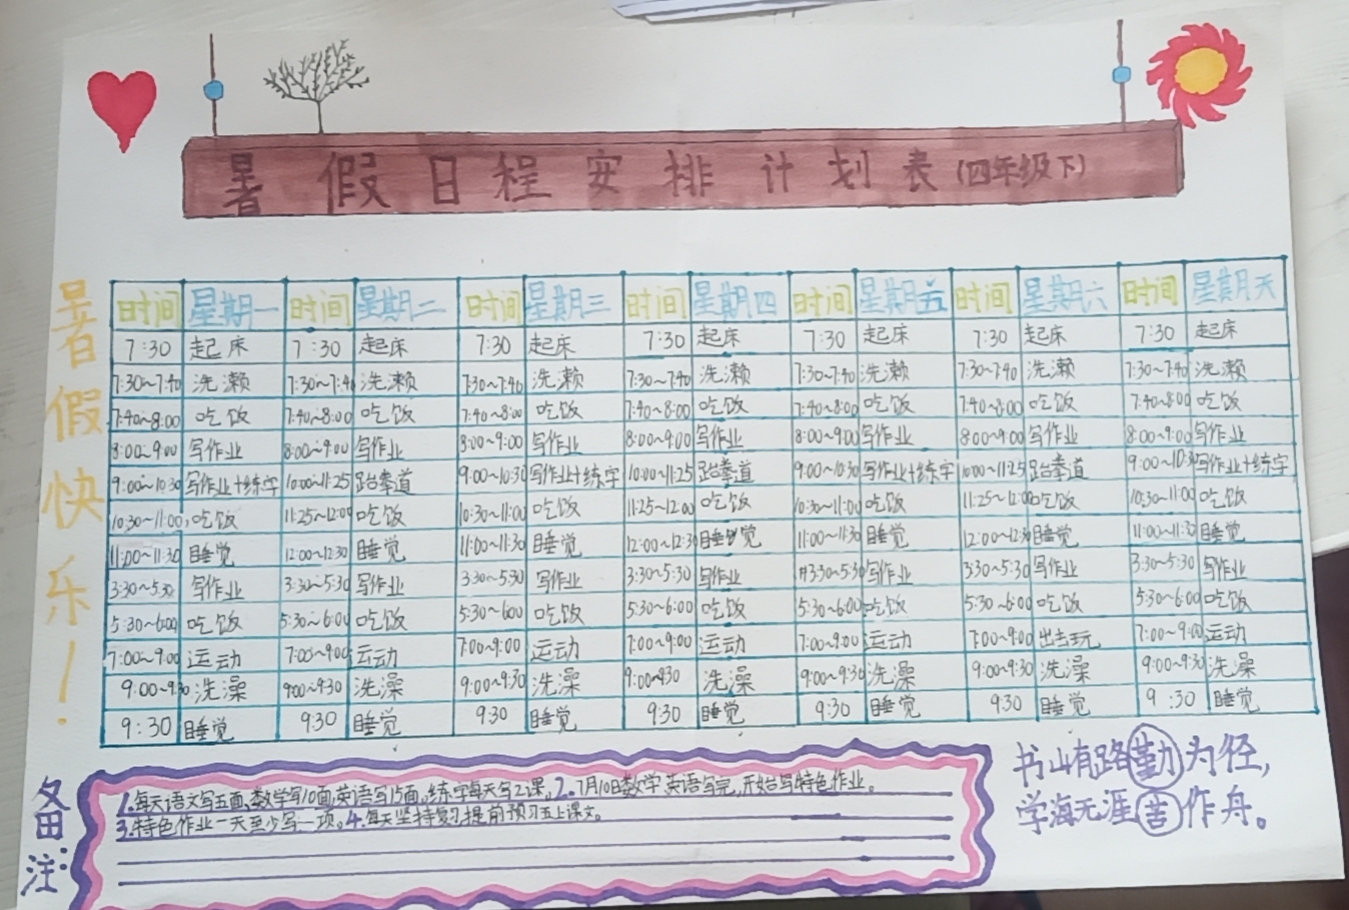 暑假日程安排计划表(四年级下)
暑假快乐!
时间 星期一 时间 星期二 时间 星期三 时间 星期四 时间 星期五 时间 星期六 时间 星期天
7:30 起床 7:30 起床 7:30 起床 7:30 起床 7:30 起床 7:30 起床 7:30 起床
7:30~7:40 洗漱 7:30~7:40 洗漱 7:30~7:40 洗漱 7:30~7:40 洗漱 7:30~7:40 洗漱 7:30~7:40 洗漱 7:30~7:40 洗漱
7:40~8:00 吃饭 7:40~8:00 吃饭 7:40~8:00 吃饭 7:40~8:00 吃饭 7:40~8:00 吃饭 7:40~8:00 吃饭 7:40~8:00 吃饭
8:00~9:00 写作业 8:00~9:00 写作业 8:00~9:00 写作业 8:00~9:00 写作业 8:00~9:00 写作业 8:00~9:00 写作业 8:00~9:00 写作业
9:00~10:30 写作业+练字 10:00~11:25 跆拳道 9:00~10:30 写作业+练字 10:00~11:25 跆拳道 9:00~10:30 写作业+练字 10:00~11:25 跆拳道 9:00~10:30 写作业+练字
10:30~11:00 吃饭 11:25~12:00 吃饭 10:30~11:00 吃饭 11:25~12:00 吃饭 10:30~11:00 吃饭 11:25~12:00 吃饭 10:30~11:00 吃饭
11:00~11:30 睡觉 12:00~12:30 睡觉 11:00~11:30 睡觉 12:00~12:30 睡觉 11:00~11:30 睡觉 12:00~12:30 睡觉 11:00~11:30 睡觉
3:30~5:30 写作业 3:30~5:30 写作业 3:30~5:30 写作业 3:30~5:30 写作业 3:30~5:30 写作业 3:30~5:30 写作业 3:30~5:30 写作业
5:30~6:00 吃饭 5:30~6:00 吃饭 5:30~6:00 吃饭 5:30~6:00 吃饭 5:30~6:00 吃饭 5:30~6:00 吃饭 5:30~6:00 吃饭
7:00~9:00 运动 7:00~9:00 运动 7:00~9:00 运动 7:00~9:00 运动 7:00~9:00 运动 7:00~9:00 出去玩 7:00~9:00 运动
9:00~9:30 洗澡 9:00~9:30 洗澡 9:00~9:30 洗澡 9:00~9:30 洗澡 9:00~9:30 洗澡 9:00~9:30 洗澡 9:00~9:30 洗澡
9:30 睡觉 9:30 睡觉 9:30 睡觉 9:30 睡觉 9:30 睡觉 9:30 睡觉 9:30 睡觉
备注:
1.每天语文写五面,数学写10面,英语写15面。练字每天写22课。2.7月10日数学,英语写完,开始写特色作业。
3.特色作业一天至少写一项。4.每天坚持复习,提前预习五上课文。
书山有路勤为径,
学海无涯苦作舟。